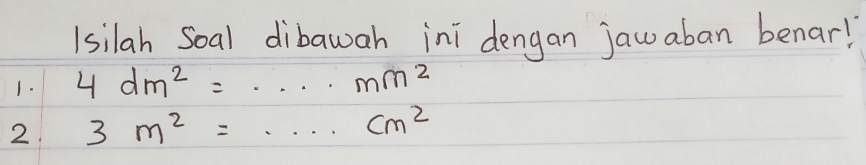 Isilah Soal dibawah ini dengan jawaban benar!
1. 4 dm² = .... mm²
2. 3 m² = ..... cm²